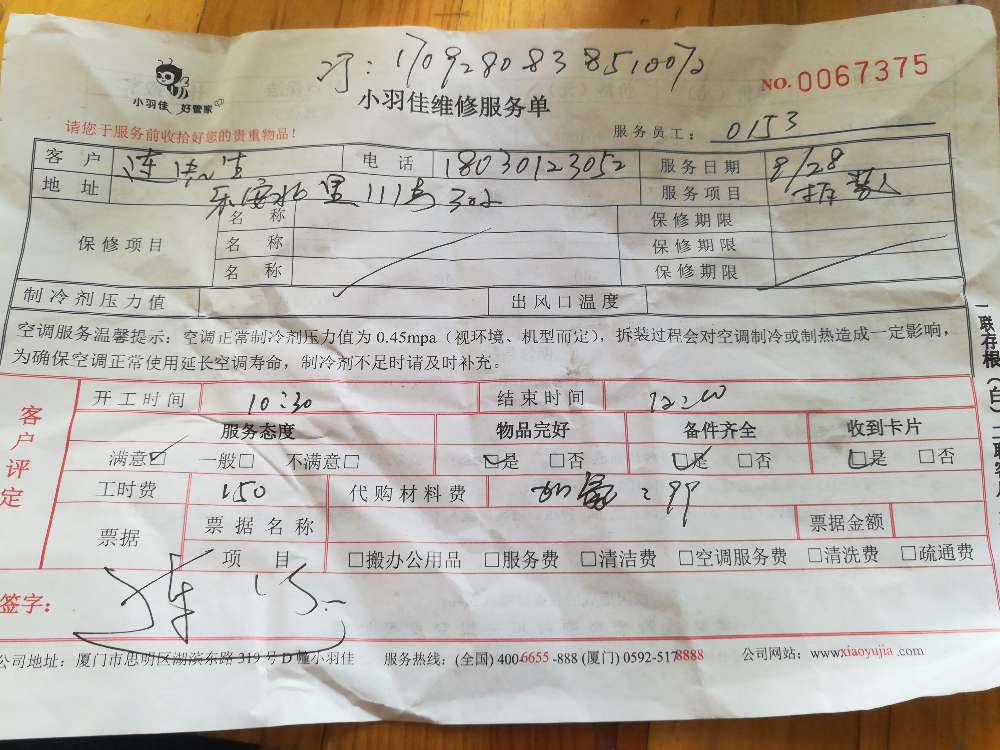 170928083851007
NO.0067375
小羽佳 好管家
小羽佳维修服务单
请您于服务前收拾好您的贵重物品！
服务员工： 0153
客户 连 电话 18030123052 服务日期 8/28
地址 里111号302 服务项目
保修项目 名称 保修期限
名称 保修期限
名称 保修期限
制冷剂压力值 出风口温度
空调服务温馨提示：空调正常制冷剂压力值为 0.45mpa（视环境、机型而定），拆装过程会对空调制冷或制热造成一定影响，
为确保空调正常使用延长空调寿命，制冷剂不足时请及时补充。
客户评定
开工时间 10:30 结束时间 12:00
服务态度 物品完好 备件齐全 收到卡片
满意☑ 一般□ 不满意□ ☑是 □否 ☑是 □否 ☑是 □否
工时费 150 代购材料费 99
票据 票据名称 票据金额
项目 □搬办公用品 □服务费 □清洁费 □空调服务费 □清洗费 □疏通费
签字：
公司地址：厦门市思明区湖滨东路 319 号 D 幢小羽佳 服务热线：(全国) 400-6655-888 (厦门) 0592-5178888 公司网站：www.xiaoyujia.com
一联存根（白）